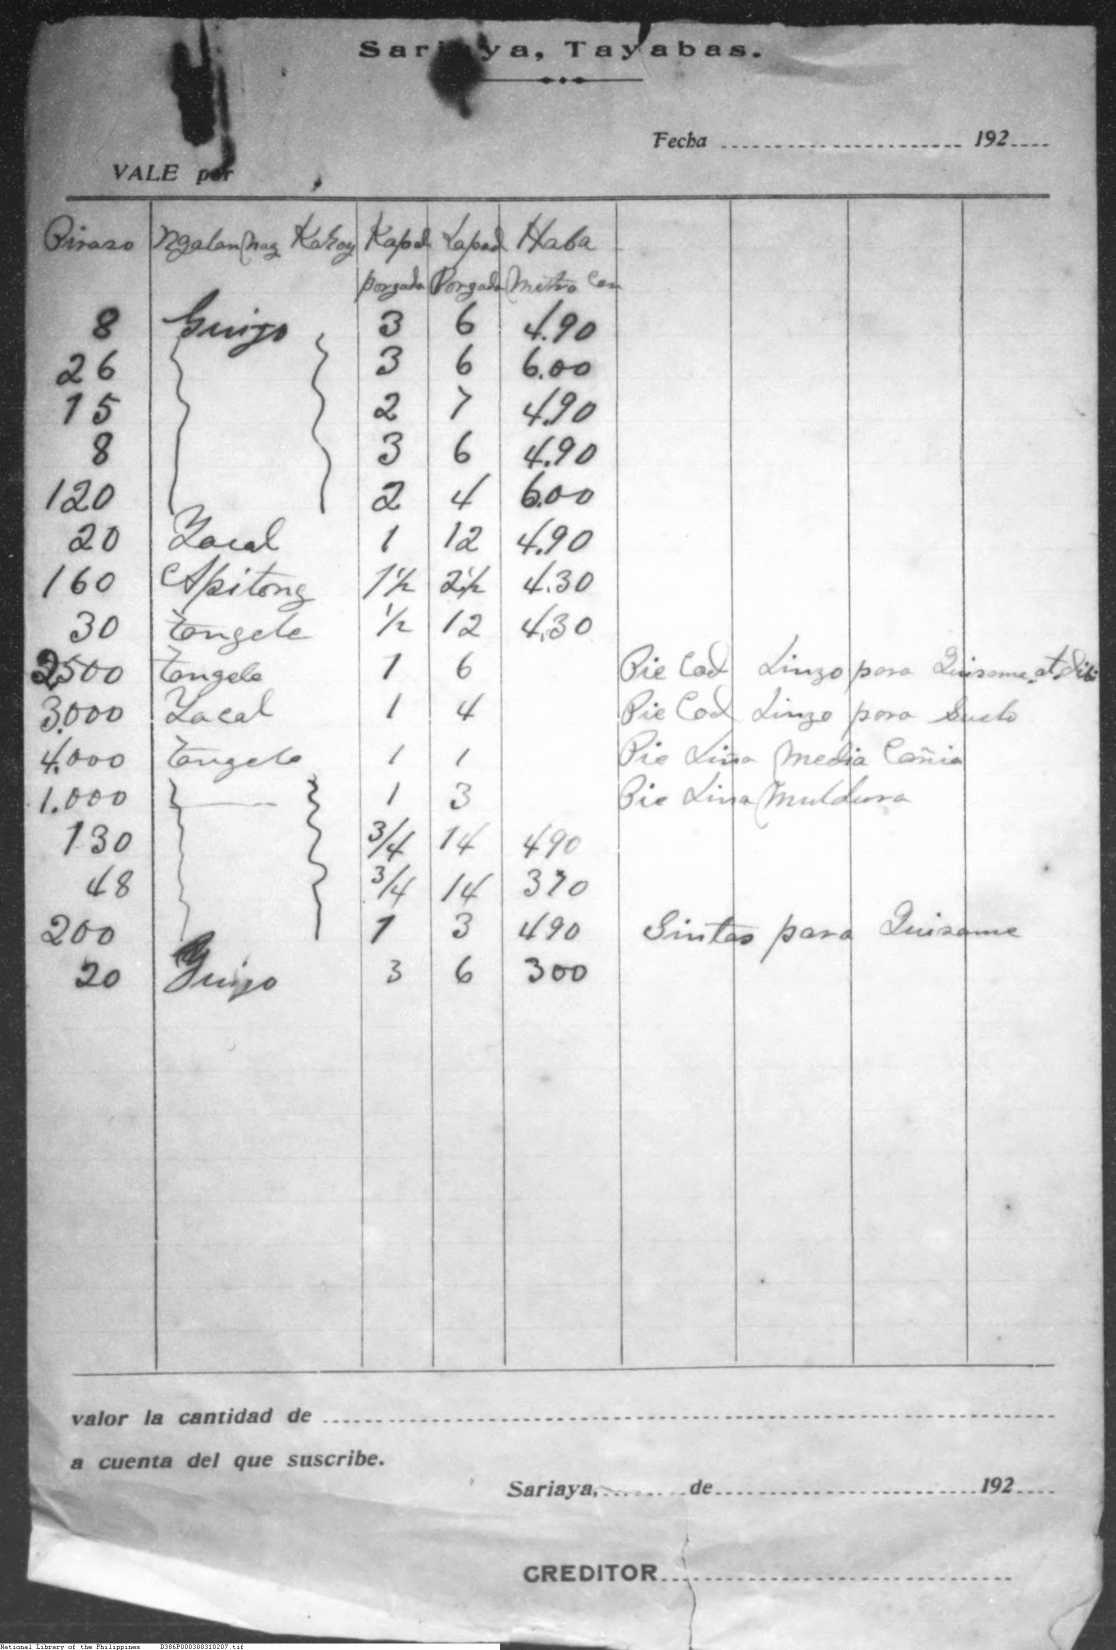 Sariaya, Tayabas.
Fecha 192
VALE por
Piraso Ngalan nag Kahoy Kapal Lapad Haba
porgada Porgada Metro Cen
8 Guijo 3 6 4.90
26 3 6 6.00
15 2 7 4.90
8 3 6 4.90
120 2 4 6.00
20 Yacal 1 12 4.90
160 Apitong 1 1/2 2 1/2 4.30
30 Tangele 1/2 12 4.30
2500 Tangele 1 6 Pie Cad Linzo para Quisame at
3.000 Yacal 1 4 Pie Cad Linzo para Suelo
4.000 Tangele 1 1 Pie Liña Media Cañia
1.000 1 3 Pie Lina Muldura
130 3/4 14 490
48 3/4 14 370
200 1 3 490 Sintas para Quisame
20 Guijo 3 6 300
valor la cantidad de
a cuenta del que suscribe.
Sariaya, de 192
CREDITOR
National Library of the Philippines D386P000308310207.tif